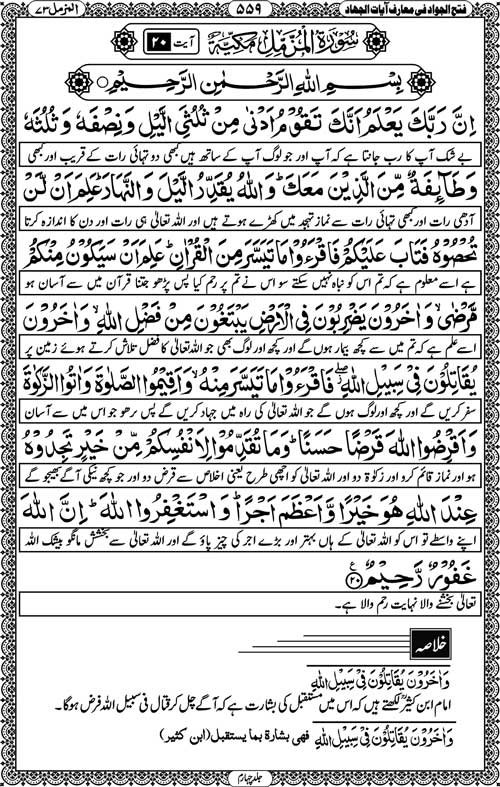 المزمل ۷۳
۵۵۹
فتح الجواد فی معارف آیات الجہاد
سورة المزمل مكية
آیت ۲۰
بسم الله الرحمن الرحيم
اِنَّ رَبَّكَ يَعْلَمُ اَنَّكَ تَقُوْمُ اَدْنٰى مِنْ ثُلُثَيِ الَّيْلِ وَنِصْفَهٗ وَثُلُثَهٗ
بے شک آپ کا رب جانتا ہے کہ آپ اور جو لوگ آپ کے ساتھ ہیں کبھی دو تہائی رات کے قریب اور کبھی
وَطَآئِفَةٌ مِّنَ الَّذِيْنَ مَعَكَ ؕ وَاللّٰهُ يُقَدِّرُ الَّيْلَ وَالنَّهَارَ ؕ عَلِمَ اَنْ لَّنْ
آدھی رات اور کبھی تہائی رات سے نماز تہجد میں کھڑے ہوتے ہیں اور اللہ تعالیٰ ہی رات اور دن کا اندازہ کرتا
تُحْصُوْهُ فَتَابَ عَلَيْكُمْ فَاقْرَءُوْا مَا تَيَسَّرَ مِنَ الْقُرْاٰنِ ؕ عَلِمَ اَنْ سَيَكُوْنُ مِنْكُمْ
ہے اسے معلوم ہے کہ تم اس کو نباہ نہیں سکتے سو اس نے تم پر رحم کیا پس پڑھو جتنا قرآن میں سے آسان ہو
مَّرْضٰى ۙ وَاٰخَرُوْنَ يَضْرِبُوْنَ فِى الْاَرْضِ يَبْتَغُوْنَ مِنْ فَضْلِ اللّٰهِ ۙ وَاٰخَرُوْنَ
اسے علم ہے کہ تم میں سے کچھ بیمار ہوں گے اور کچھ اور لوگ بھی جو اللہ تعالیٰ کا فضل تلاش کرتے ہوئے زمین پر
يُقَاتِلُوْنَ فِىْ سَبِيْلِ اللّٰهِ ۖ فَاقْرَءُوْا مَا تَيَسَّرَ مِنْهُ ۙ وَاَقِيْمُوا الصَّلٰوةَ وَاٰتُوا الزَّكٰوةَ
سفر کریں گے اور کچھ اور لوگ ہوں گے جو اللہ تعالیٰ کی راہ میں جہاد کریں گے پس پڑھو جو اس میں سے آسان
وَاَقْرِضُوا اللّٰهَ قَرْضًا حَسَنًا ؕ وَمَا تُقَدِّمُوْا لِاَنْفُسِكُمْ مِّنْ خَيْرٍ تَجِدُوْهُ
ہو اور نماز قائم کرو اور زکوٰة دو اور اللہ تعالیٰ کو اچھی طرح یعنی اخلاص سے قرض دو اور جو کچھ نیکی آگے بھیجو گے
عِنْدَ اللّٰهِ هُوَ خَيْرًا وَّاَعْظَمَ اَجْرًا ؕ وَاسْتَغْفِرُوا اللّٰهَ ؕ اِنَّ اللّٰهَ
اپنے واسطے تو اس کو اللہ تعالیٰ کے ہاں بہتر اور بڑے اجر کی چیز پاؤ گے اور اللہ تعالیٰ سے بخشش مانگو بیشک اللہ
غَفُوْرٌ رَّحِيْمٌ ۲۰
تعالیٰ بخشنے والا نہایت رحم والا ہے۔
خلاصہ
وَاٰخَرُوْنَ يُقَاتِلُوْنَ فِىْ سَبِيْلِ اللّٰهِ
امام ابن کثیرؒ لکھتے ہیں کہ اس میں مستقبل کی بشارت ہے کہ آگے چل کر قتال فی سبیل اللہ فرض ہوگا۔
وَاٰخَرُوْنَ يُقَاتِلُوْنَ فِىْ سَبِيْلِ اللّٰهِ فهى بشارة بما يستقبل (ابن كثير)
جلد چہارم